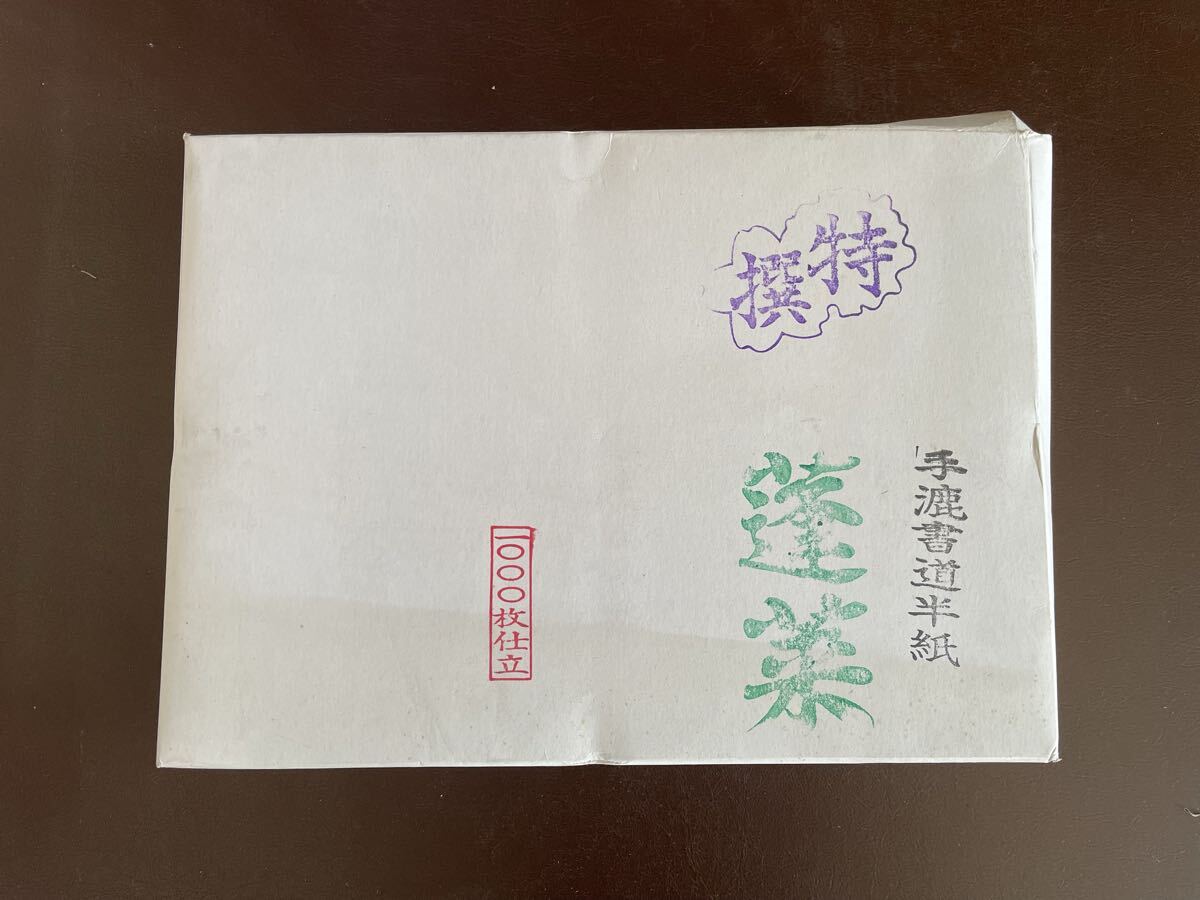 特撰
手漉書道半紙
蓬莱
一〇〇〇枚仕立